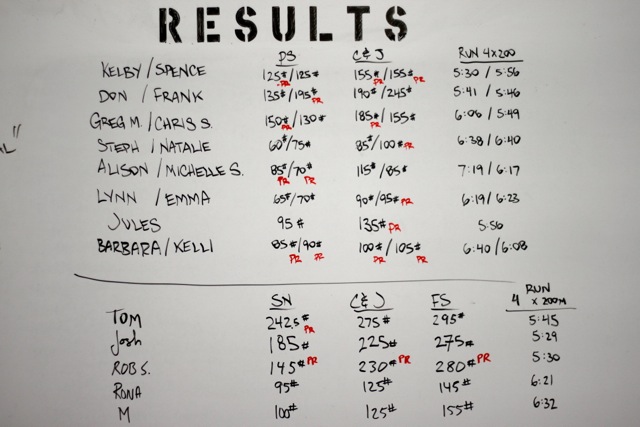 RESULTS
PS C&J RUN 4x200
KELBY/SPENCE 125#PR/125# 155#PR/155#PR 5:30 / 5:56
DON / FRANK 135#/195#PR 190#/245# 5:41 / 5:46
GREG M./CHRIS S. 150#PR/130# 185#PR/155# 6:06 / 5:49
STEPH / NATALIE 60#/75# 85#/100#PR 6:38/6:40
AL"
ALISON/MICHELLE S. 85#PR/70#PR 115#/85# 7:19/6:17
LYNN / EMMA 65#/70# 90#/95#PR 6:19/6:23
JULES 95# 135#PR 5:56
BARBARA/KELLI 85#PR/90#PR 100#PR/105#PR 6:40/6:08
SN C&J FS RUN 4 x 200M
TOM 242.5#PR 275# 295# 5:45
Josh 185# 225# 275# 5:29
ROB S. 145#PR 230#PR 280#PR 5:30
RONA 95# 125# 145# 6:21
M 100# 125# 155# 6:32